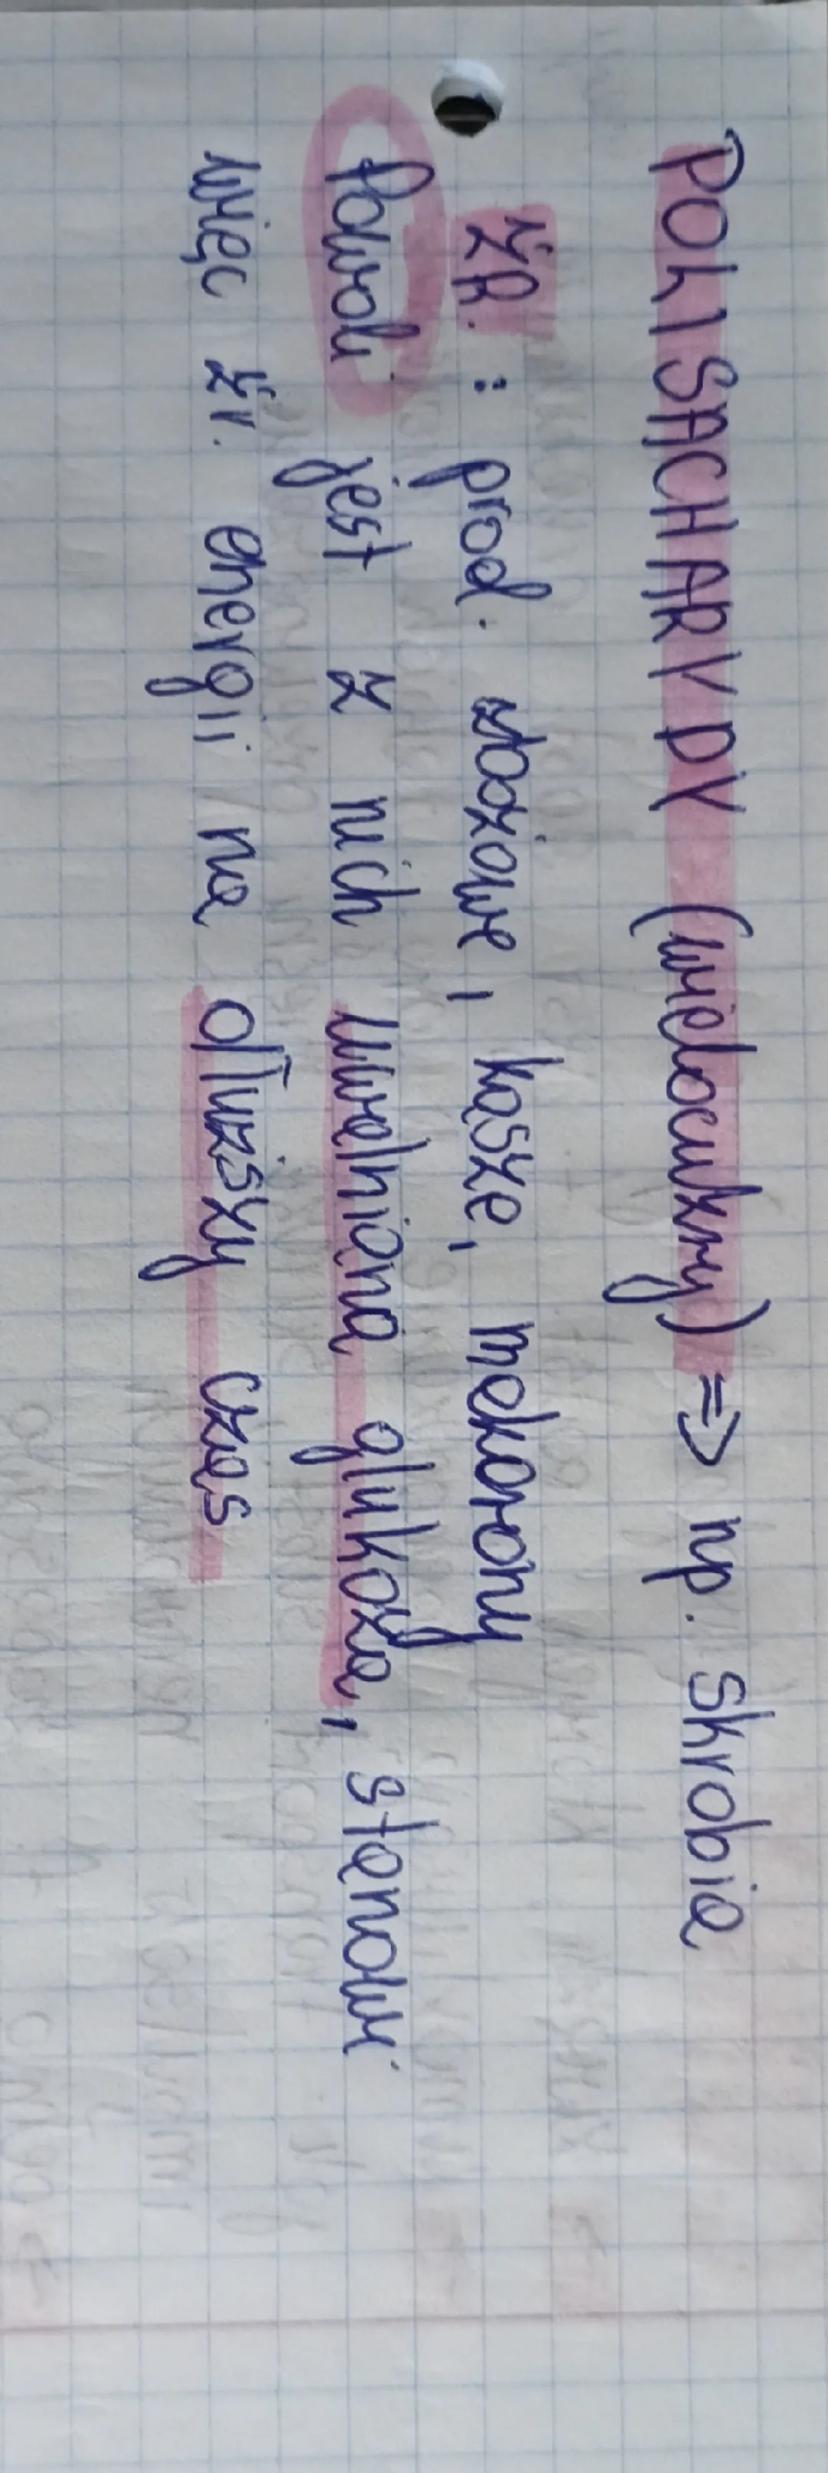 POLISACHARYDY (wielocukry) => np. skrobia
ŹR. : prod. zbożowe, kasze, makarony
Powoli jest z nich uwalniana glukoza, stanowi
więc źr. energii na dłuższy czas